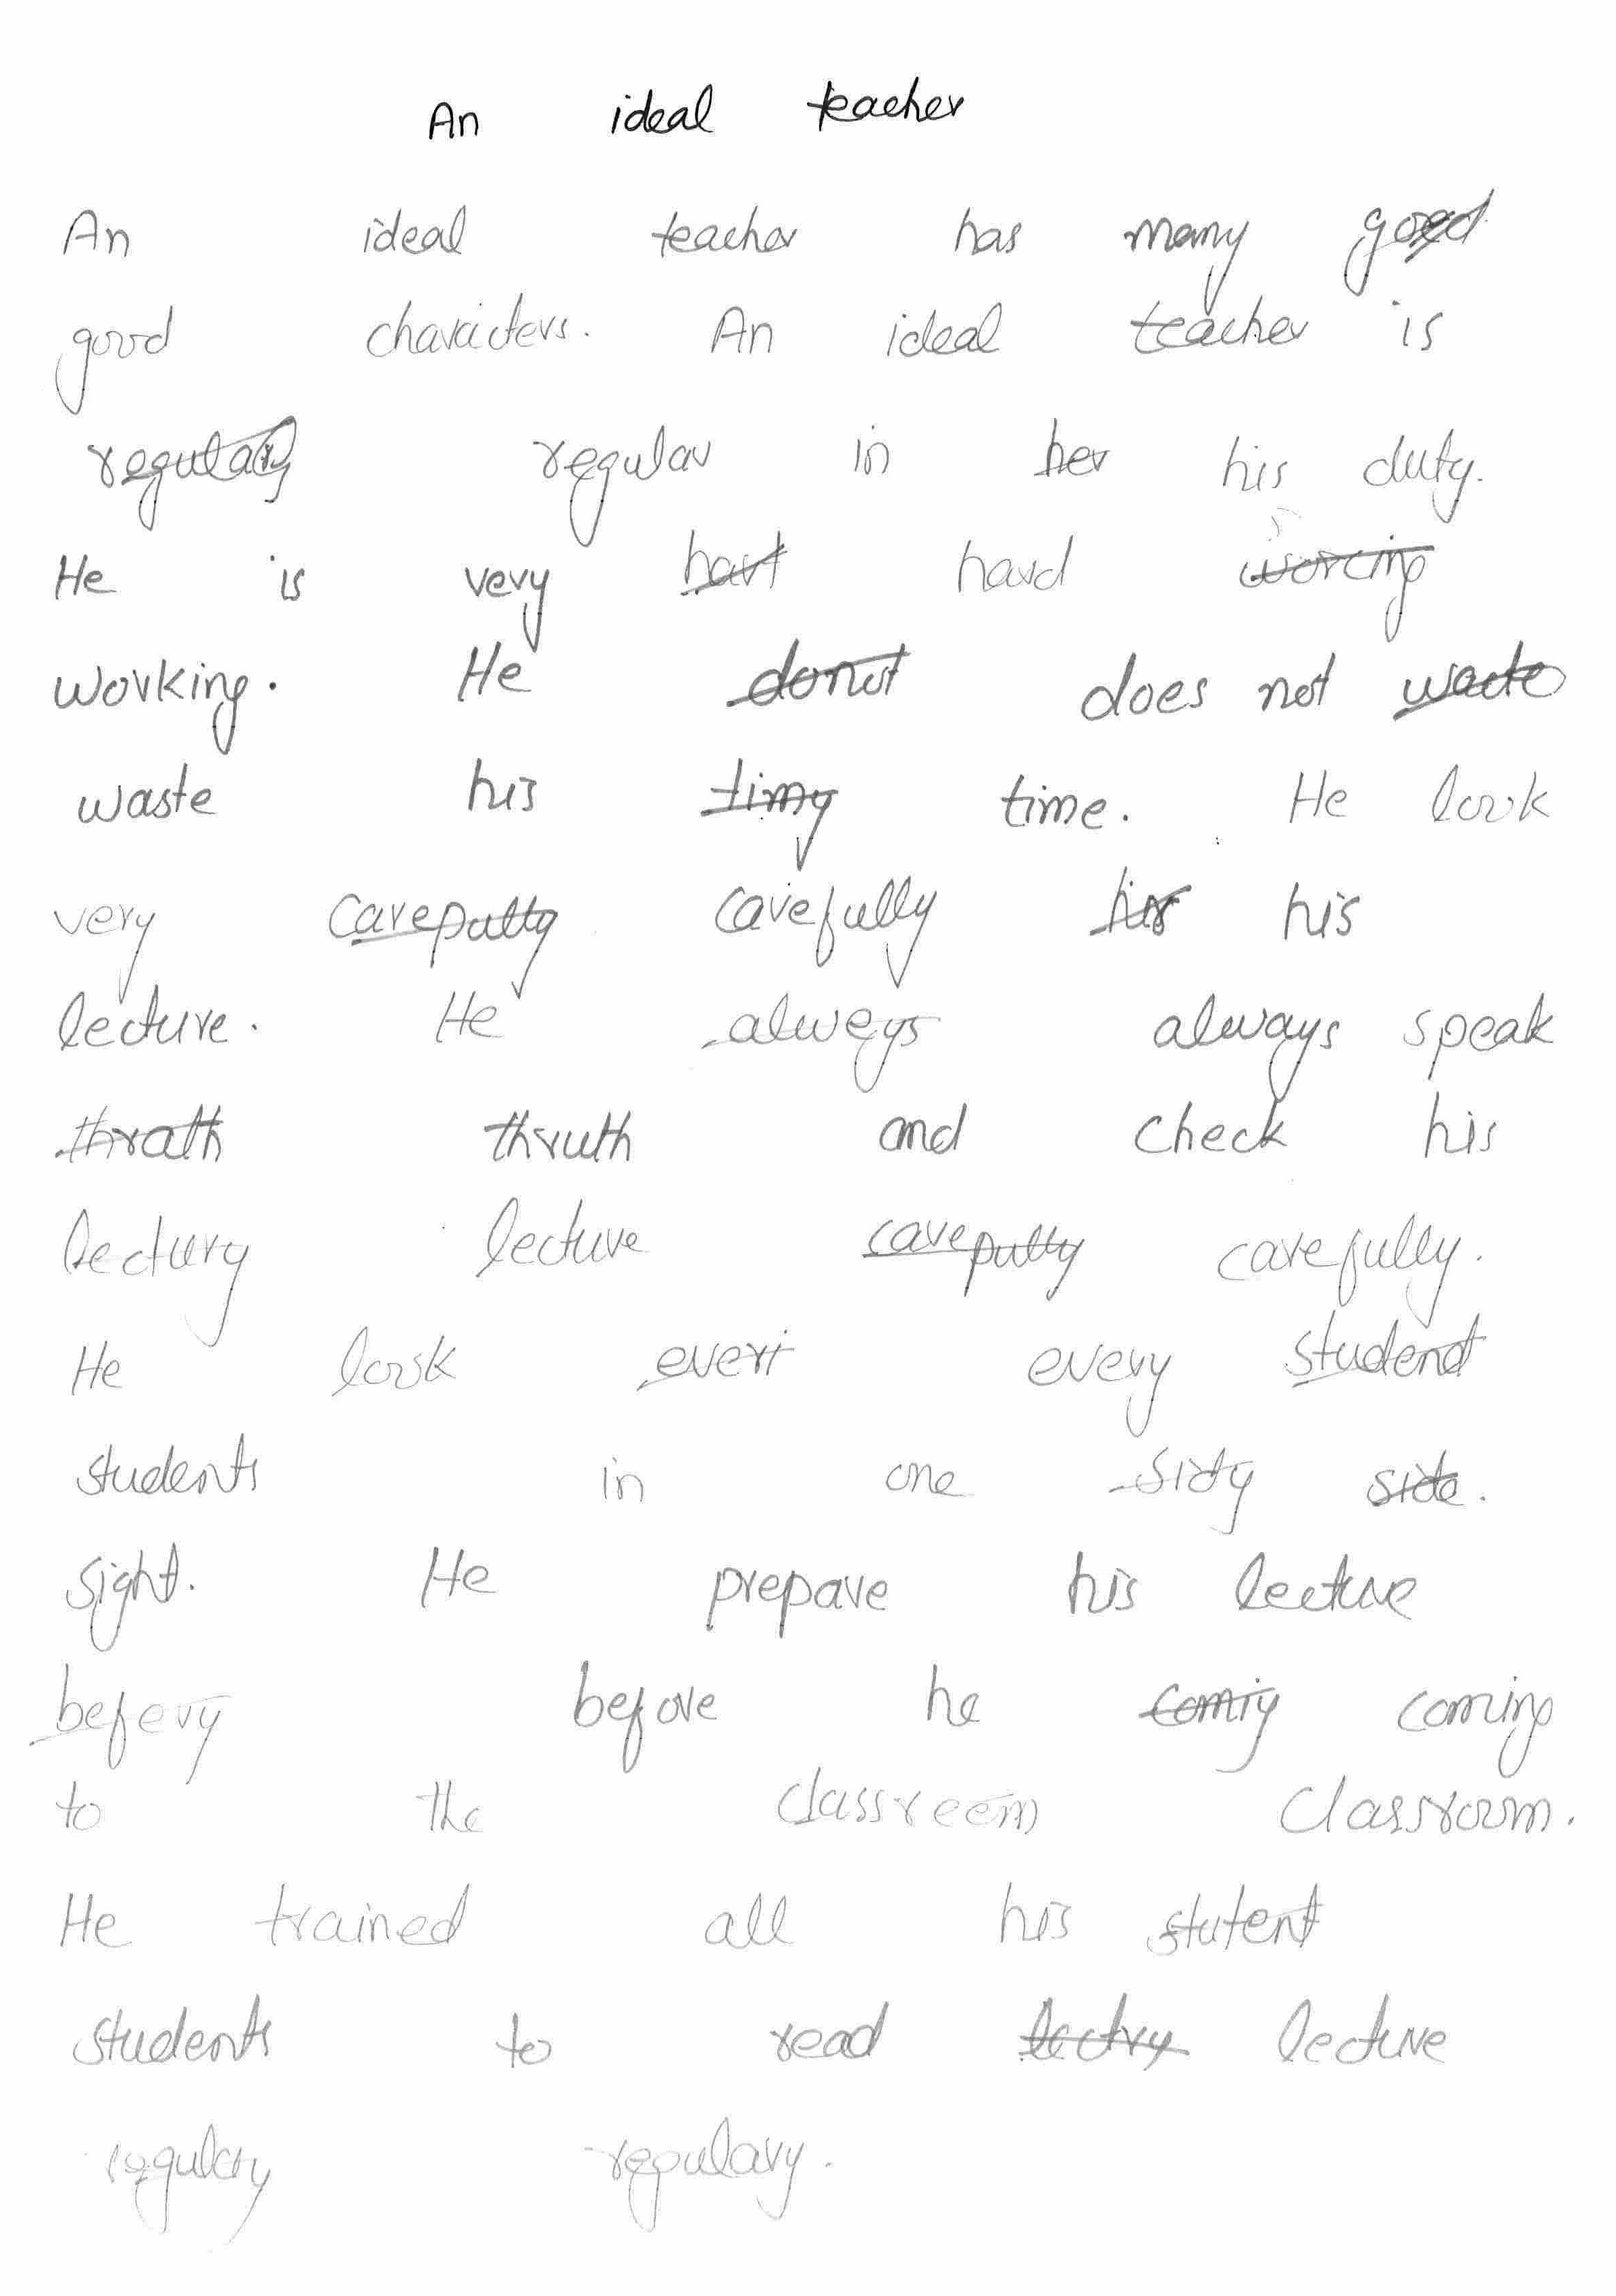 An ideal teacher
An ideal teacher has many good
good characters. An ideal teacher is
regulary regular in her his duty.
He is very hart hard worcing
working. He donot does not waste
waste his timy time. He look
very careputty carefully his his
lecture. He alweys always speak
thrath thruth and check his
lectury lecture careputty carefully.
He look everi every student
students in one sidy side.
sight. He prepare his lecture
befery before he comig coming
to the classreem classroom.
He trained all his stutent
students to read lectry lecture
regulary regulary.